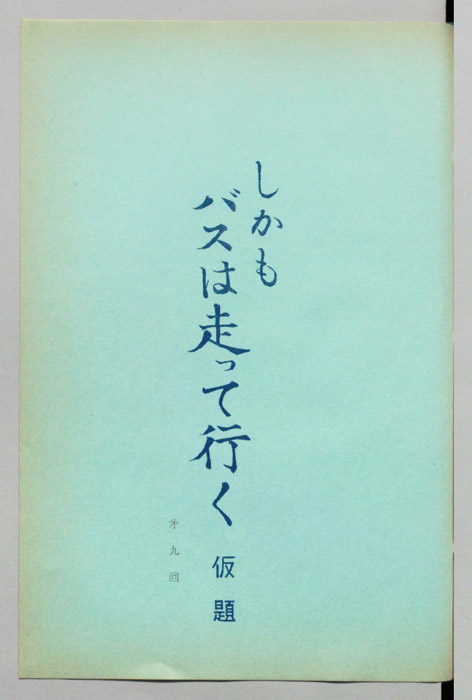 しかも
バスは走って行く 仮題
才九回